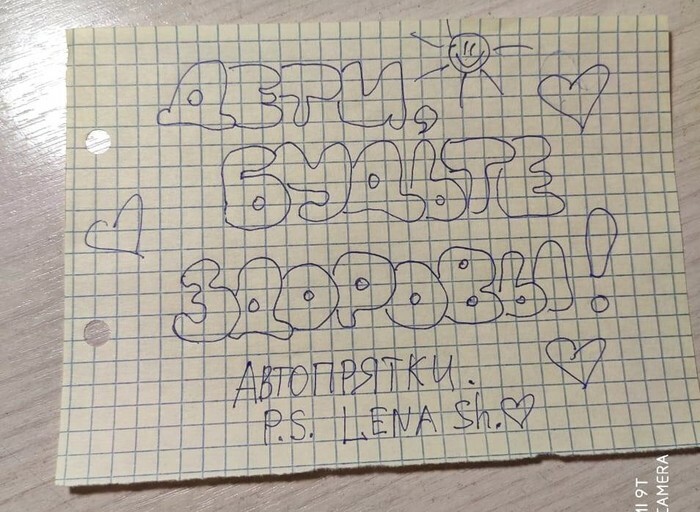 ДЕТИ,
БУДЬТЕ
ЗДОРОВЫ!
АВТОПРЯТКИ.
P.S. LENA Sh.♡
MI 9T
CAMERA